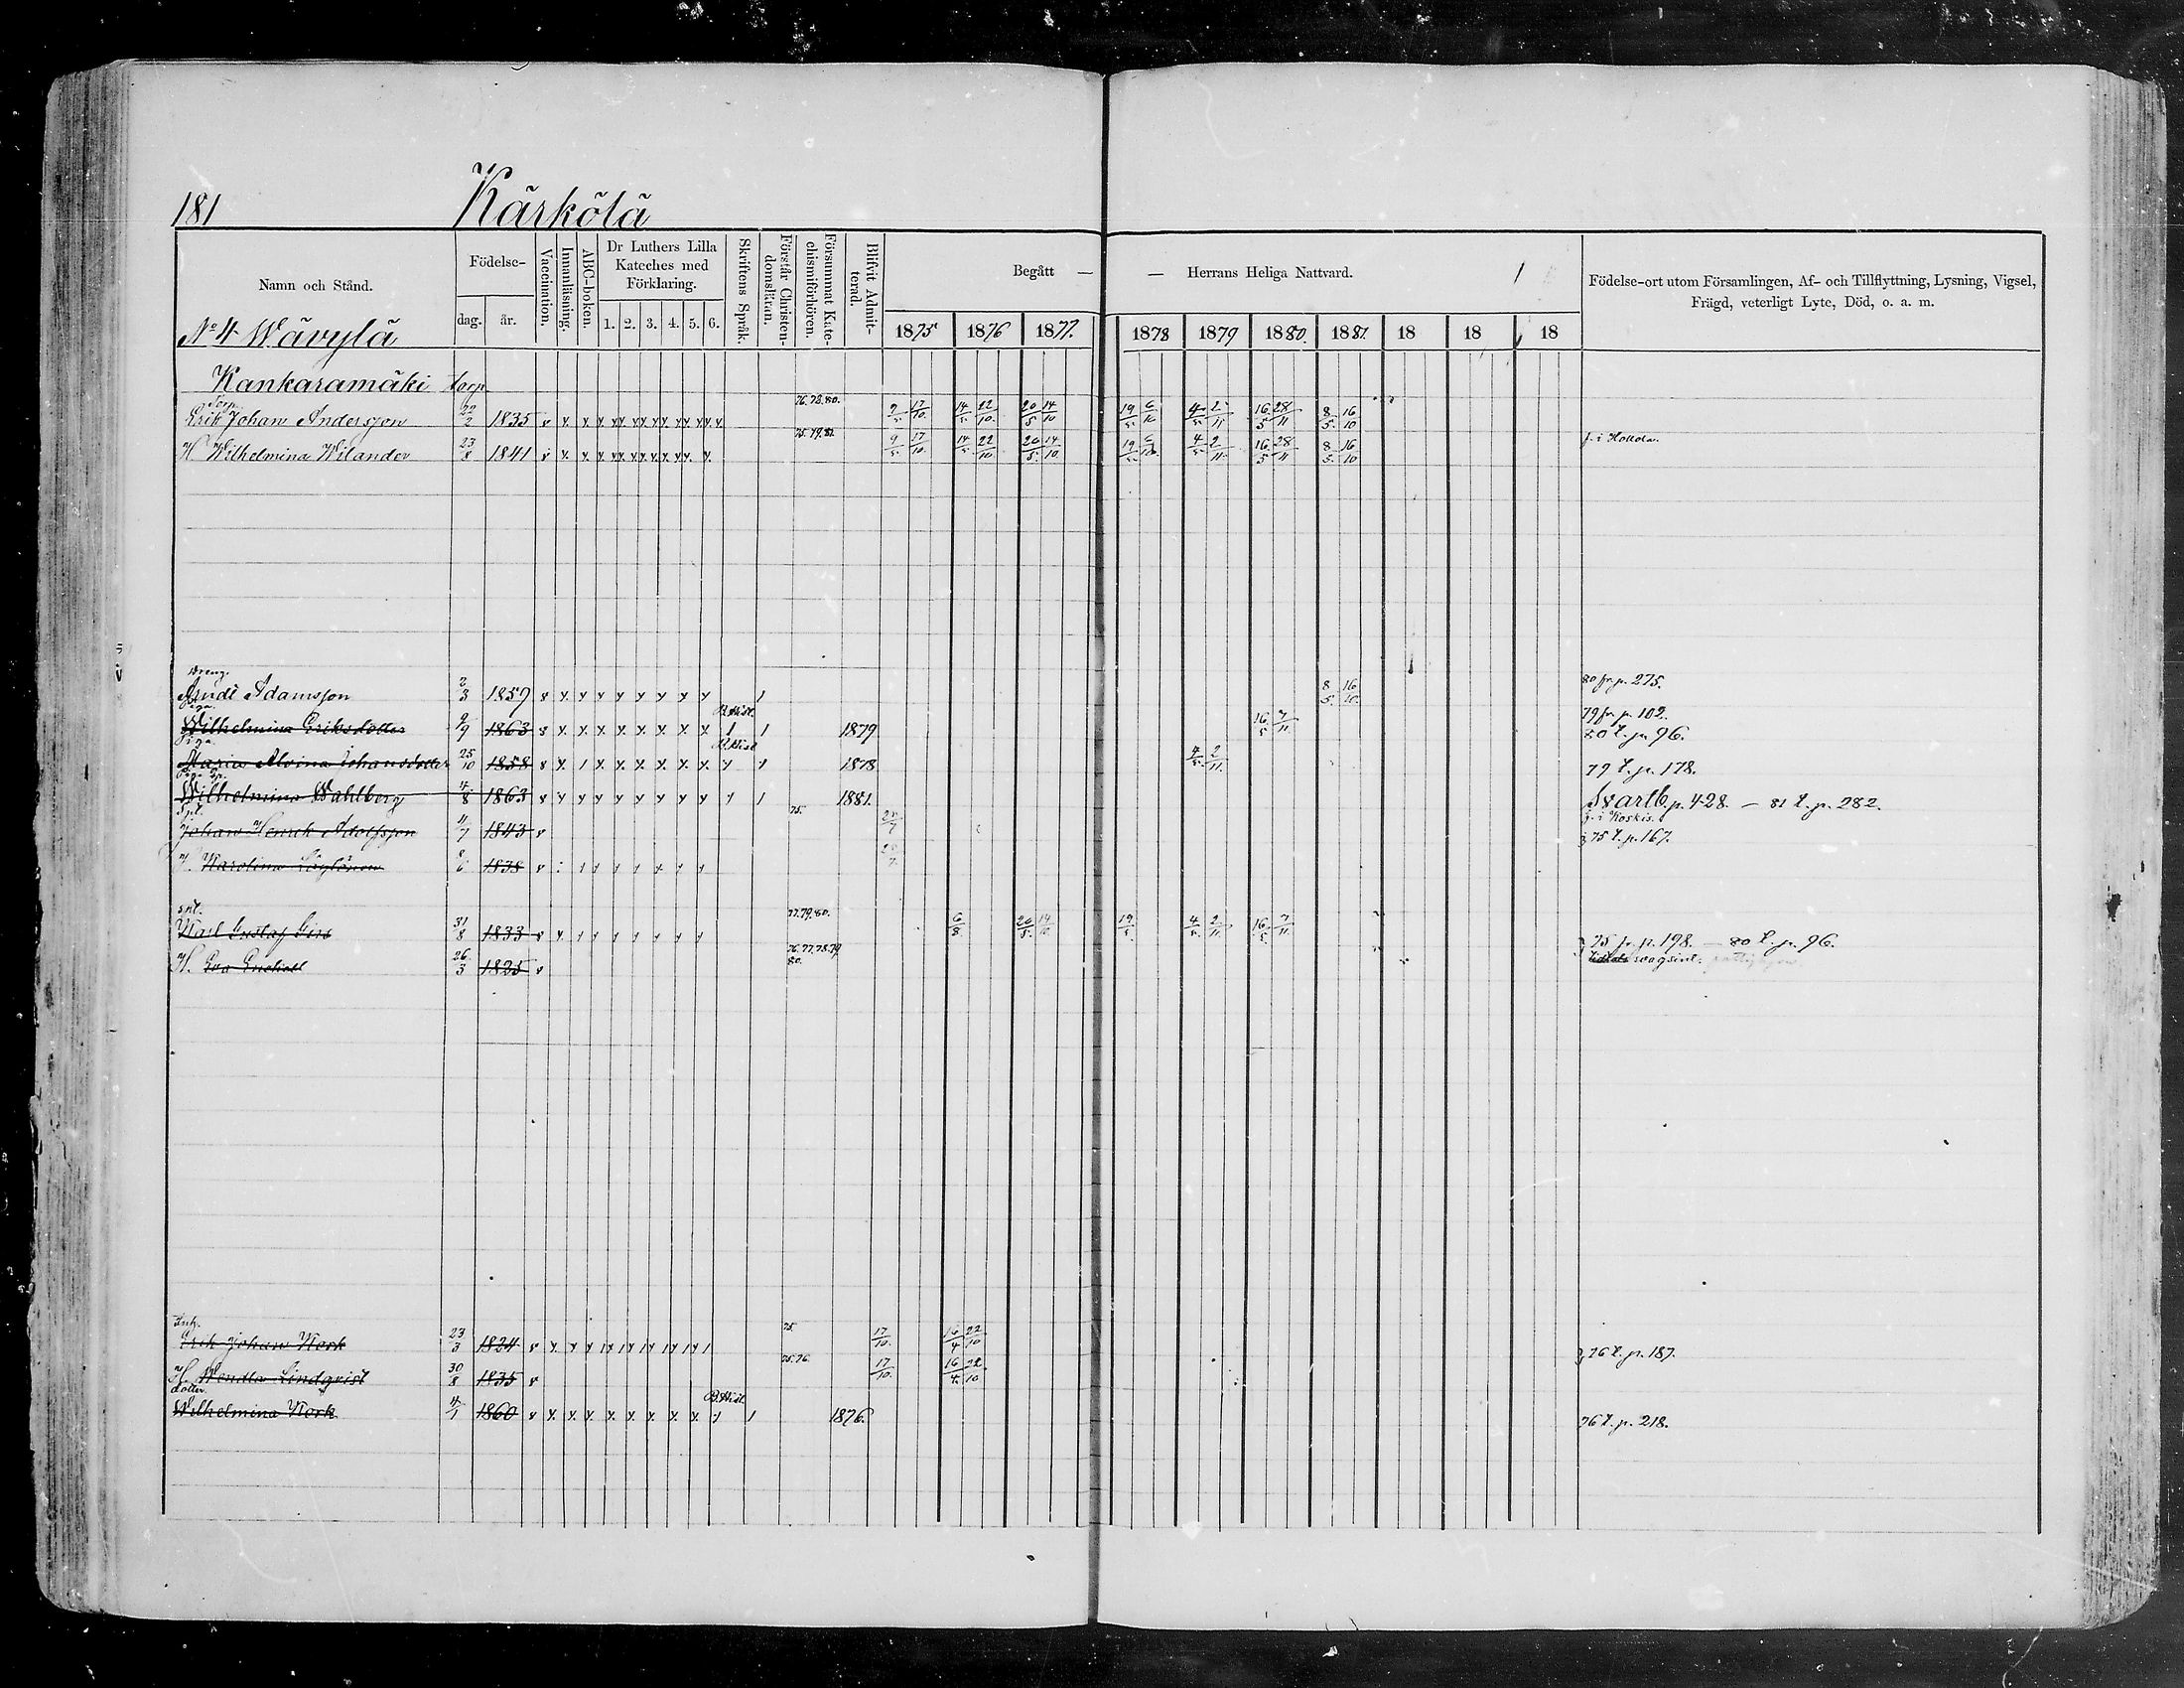 181 Kärkölä
Namn och Stånd.
Födelse-
dag. år.
Vaccination.
Innanläsning.
ABC-boken.
Dr Luthers Lilla
Kateches med
Förklaring.
1. 2. 3. 4. 5. 6.
Skriftens Språk.
Förstår Christen-
domsläran.
Försummat Kate-
chismiförhören.
Blifvit Admit-
terad.
Begått — — Herrans Heliga Nattvard.
1875 1876 1877. 1878 1879 1880. 1881. 18 18 18
Födelse-ort utom Församlingen, Af- och Tillflyttning, Lysning, Vigsel,
Frägd, veterligt Lyte, Död, o. a. m.
No 4 Wävylä
Kankaramäki torp
Torp.
Erik Johan Andersson 22/2 1835 76.78.80. 9/5 17/10. 14/5 22/10. 20/5 14/10 19/5 6/10 4/5 2/11 16/5 28/11 8/5. 16/10
H Wilhelmina Wilander 23/8 1841 75.79.81. 9/5 17/10. 14/5 22/10 20/5 14/10. 19/5 6/10. 4/5 2/11. 16/5 28/11 8/5. 16/10 f. i Hollola.
Dreng.
Andi Adamsson 2/3 1859 8/5. 16/10. 80 fr. p. 275.
Piga. B.Hist. 79 fr. p. 102.
Wilhelmina Eriksdotter 2/9 1863 1879 16/5 7/11. 80 t. p. 96.
Piga B.Hist
Maria Alvina Johansdotter 25/10 1858 1878 4/5. 2/11. 79 t. p. 178.
Wilhelmina Wahlberg 4/8 1863 1881. Svartb. p. 428. — 81 t. p. 282.
Spt. 75. f. i Koskis.
Johan Henrik Adolfsson 11/7 1843 25/7 75 t. p. 167.
H. Karolina 8/6 1838
spt. 77.79.80.
Karl Gustaf 31/8 1833 6/8. 20/5. 14/10 19/5. 4/5. 2/11. 16/5. 7/11. 75 fr. p. 198. — 80 t. p. 96.
H. Eva 26/3 1825 76.77.78.79 80. svagsint.
Inh. 75.
Erik Johan Werk 23/3 1824 17/10. 16/4 22/10 76 t. p. 187.
H. Wendla Lindqvist 30/8 1835 75.76. 17/10. 16/4. 22/10
dotter. B.Hist.
Wilhelmina Werk 4/1 1860 1876. 76 t. p. 218.